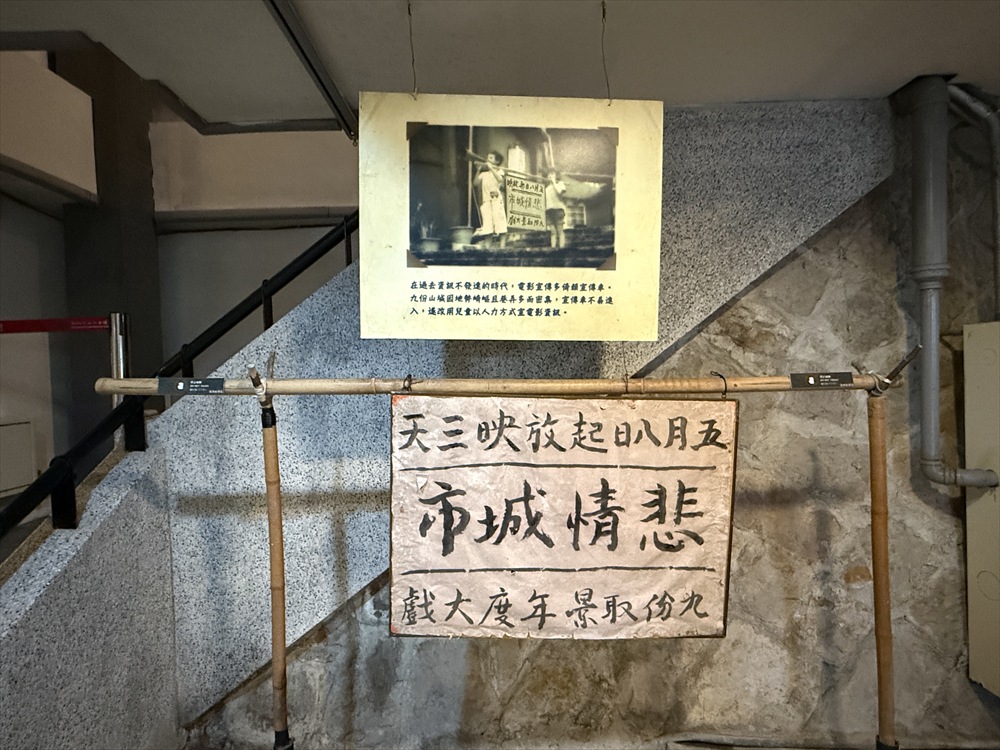 悲情城市
在過去資訊不發達的時代，電影宣傳多倚賴宣傳車。
九份山城因地勢崎嶇且巷弄多而密集，宣傳車不易進
入，遂改用兒童以人力方式宣電影資訊。
五月八日起放映三天
悲情城市
九份取景年度大戲